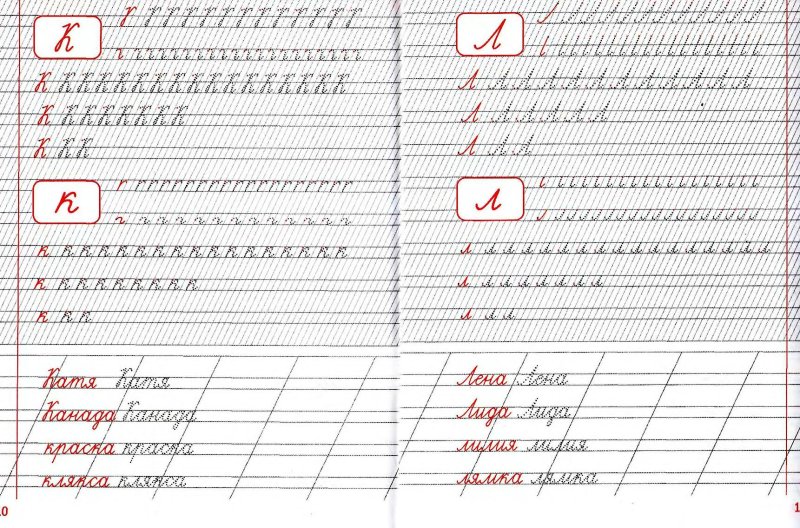 К
К К К К К К К К К К К К К К К К К
К К К К К К К К
К К К
к
к к к к к к к к к к к к к к к к к
к к к к к к к к к
к к к
Катя Катя
Канада Канада
краска краска
клякса клякса
10
Л
Л Л Л Л Л Л Л Л Л Л Л Л
Л Л Л Л Л Л
Л Л Л
л
л л л л л л л л л л л л л л л л
л л л л л л л л
л л л
Лена Лена
Лида Лида
лилия лилия
лямка лямка